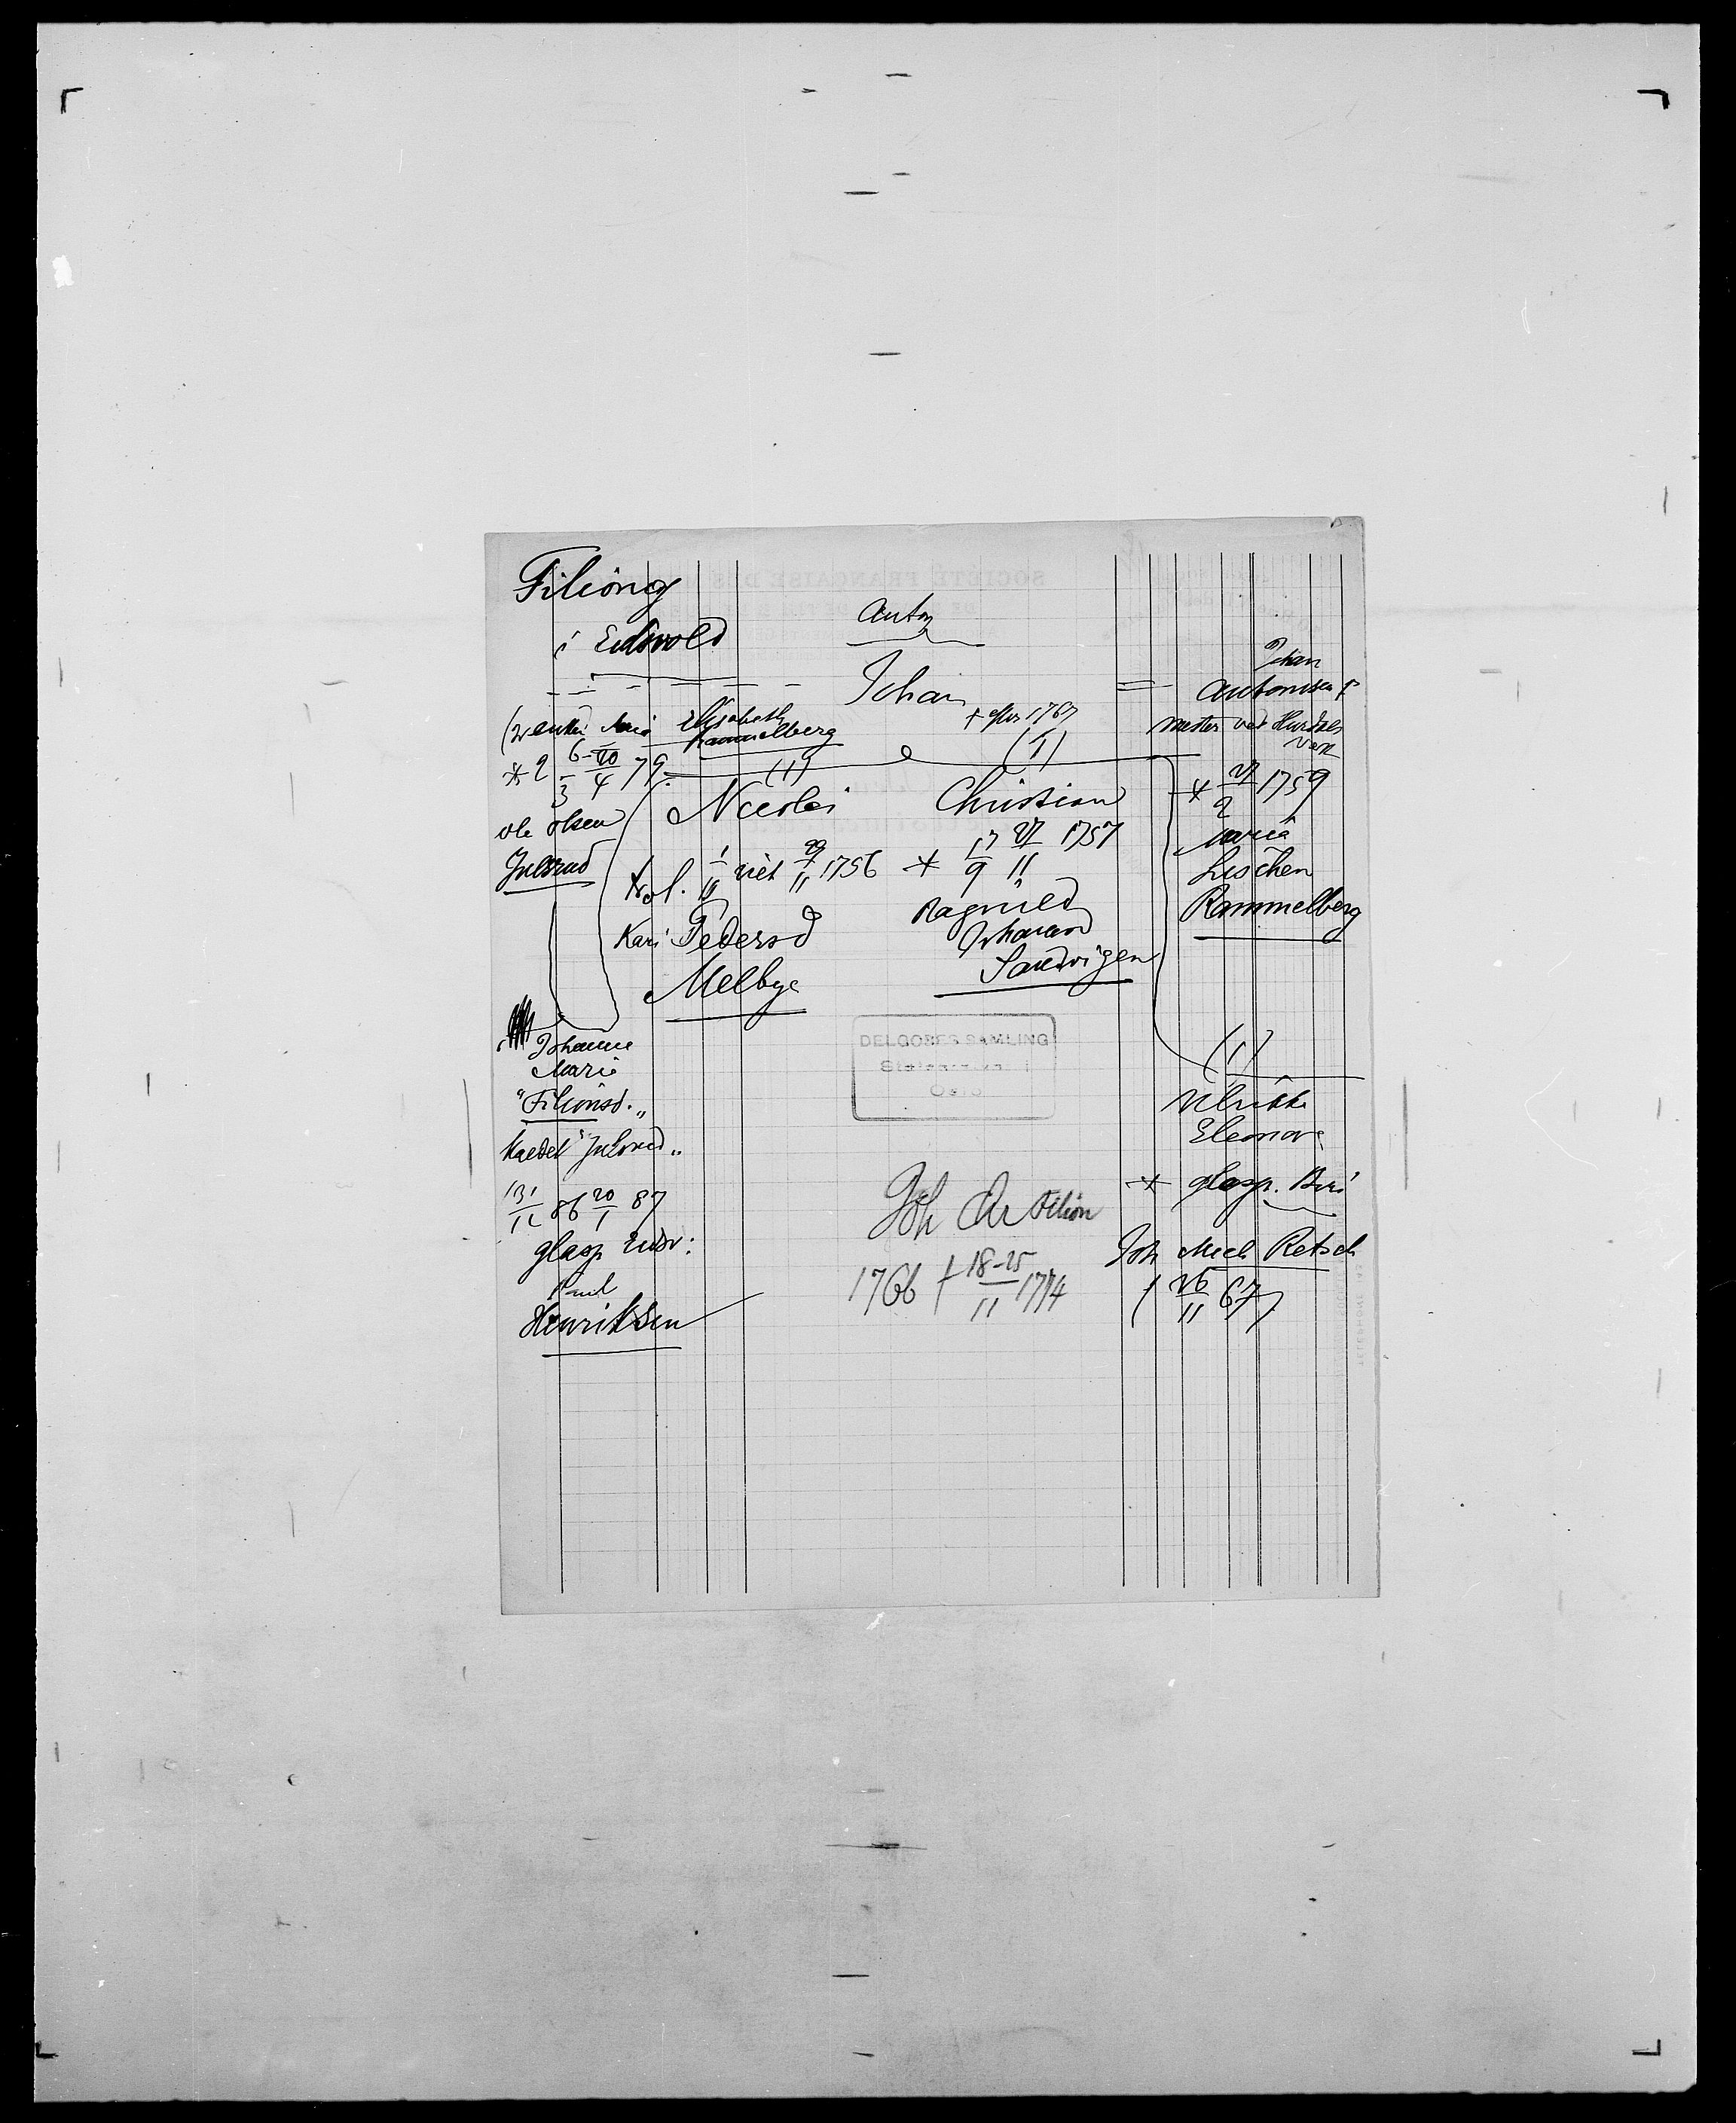 Filiong
i Eidsvold
Anton
Johan
† efter 1767
=
Johan
Antonisen ?
mester ved Hurdals
Værk
(2 Marie Elisabeth
Rammelberg
* 2 6-20 79
3 4
(1)
(1)
* 27 1759
2
Nicolai
Christian
Ole Olsen
Julsrud
1 viet 29 1756
11
* 17 27 1757
9 11
Maria
Lischen
Rammelberg
Kari Pedersd
Melbye
Ragnild
Johansd
Sandvigen
Johanne
Marie
"Filionsd."
kaldet "Julsrud"
DELGOBES SAMLING
Statsarkivet i
Oslo
(1)
Ulrikke
Eleonore
31 86 20 87
12 1
glasp Eidsv:
Paul
Henriksen
* glasp. Biri
Joh Mich Retsch
( 26 67)
11
Joh An Filion
1766 † 18-25 1774
11